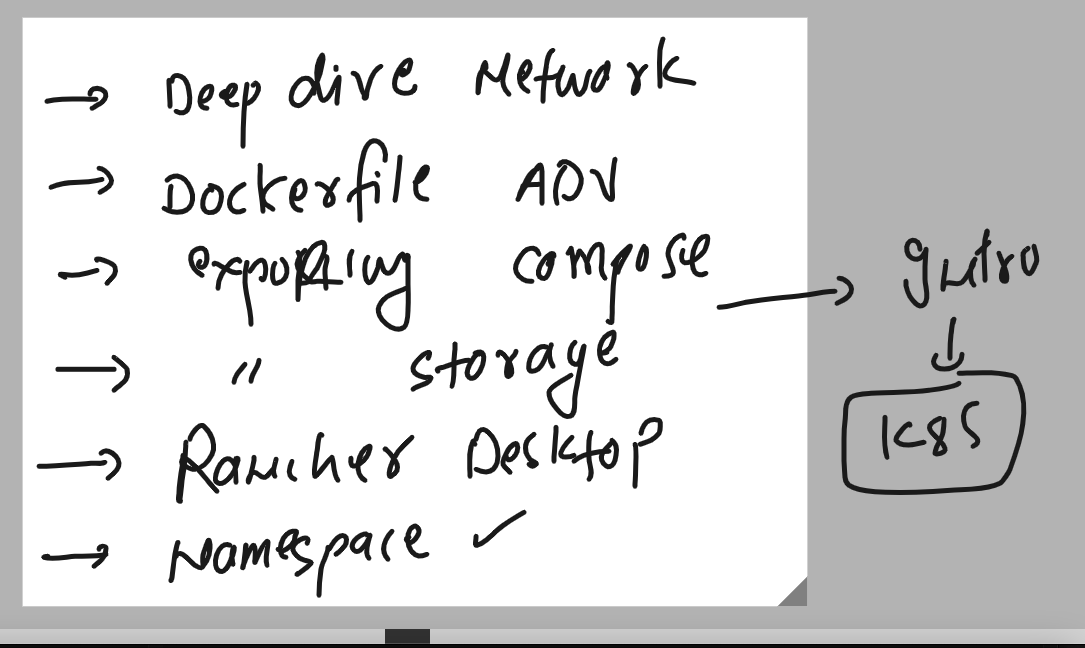 → Deep dive Network
→ Dockerfile ADV
→ exporting compose → Intro
↓
→ " storage
K8S
→ Rancher Desktop
→ Namespace ✓